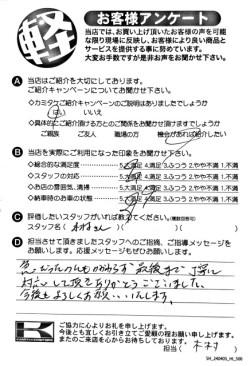 軽
お客様アンケート
当店では、お買い上げ頂いたお客様の声を可能
な限り現場に反映し、お客様により良い商品と
サービスを提供する事に努めています。
大変お手数ですが是非お声をお聞かせ下さい。
A 当店はご紹介を大切にしております。
ご紹介キャンペーンについてお聞かせ下さい。
◇カミタケご紹介キャンペーンのご説明はありましたでしょうか
はい いいえ
◇具体的にご紹介頂ける方とのご関係をお聞かせ頂けますでしょうか
ご親族 ご友人 職場の方 機会があれば紹介したい
B 当店を実際にご利用になった印象をお聞かせ下さい。
◇総合的な満足度 5.大満足 4.満足 3.ふつう 2.やや不満 1.不満
◇スタッフの対応 5.大満足 4.満足 3.ふつう 2.やや不満 1.不満
◇お店の雰囲気、清掃 5.大満足 4.満足 3.ふつう 2.やや不満 1.不満
◇納車時のお車の状態 5.大満足 4.満足 3.ふつう 2.やや不満 1.不満
C 評価したいスタッフがいれば教えてください。(複数回答可)
スタッフ名( 木村さん )( )
D 担当させて頂きましたスタッフへのご指摘、ご指導メッセージを
お願いします。応援メッセージもぜひお願いします。
急だったのにもかかわらず最後まで丁寧に
対応して頂きありがとうございました。
今後もよろしくお願いいたします。
ご協力に心よりお礼を申し上げます。
今後とも宜しくお引き立てご愛顧の程お願い申し上げます。
またのご来店を心からお待ちしております。
担当( 木村 )